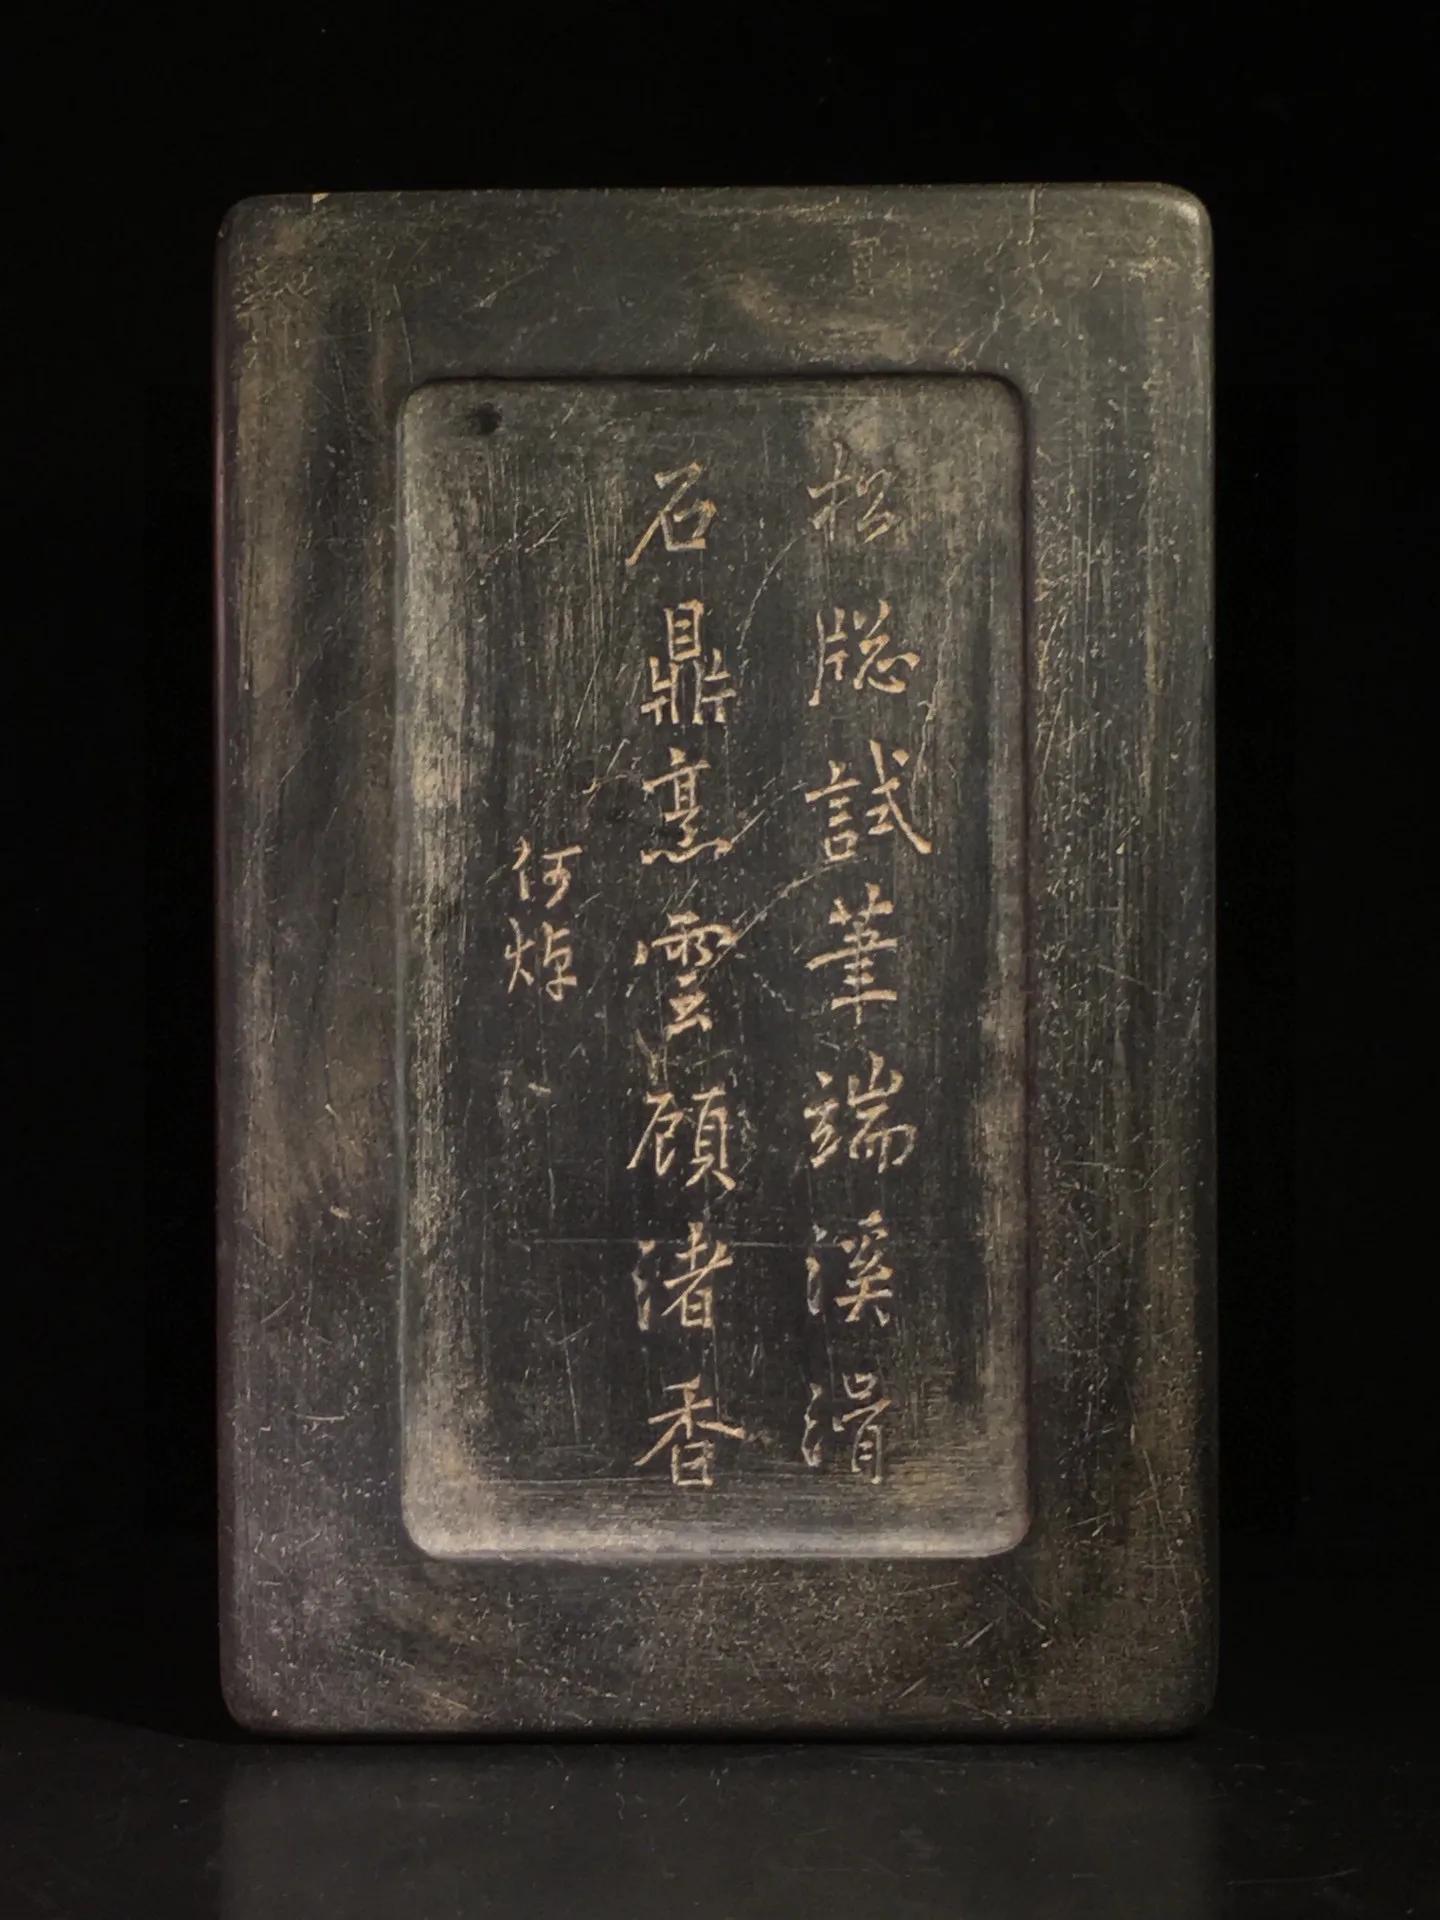 松牎試筆端溪滑
石鼎烹雲顧渚香
何焯